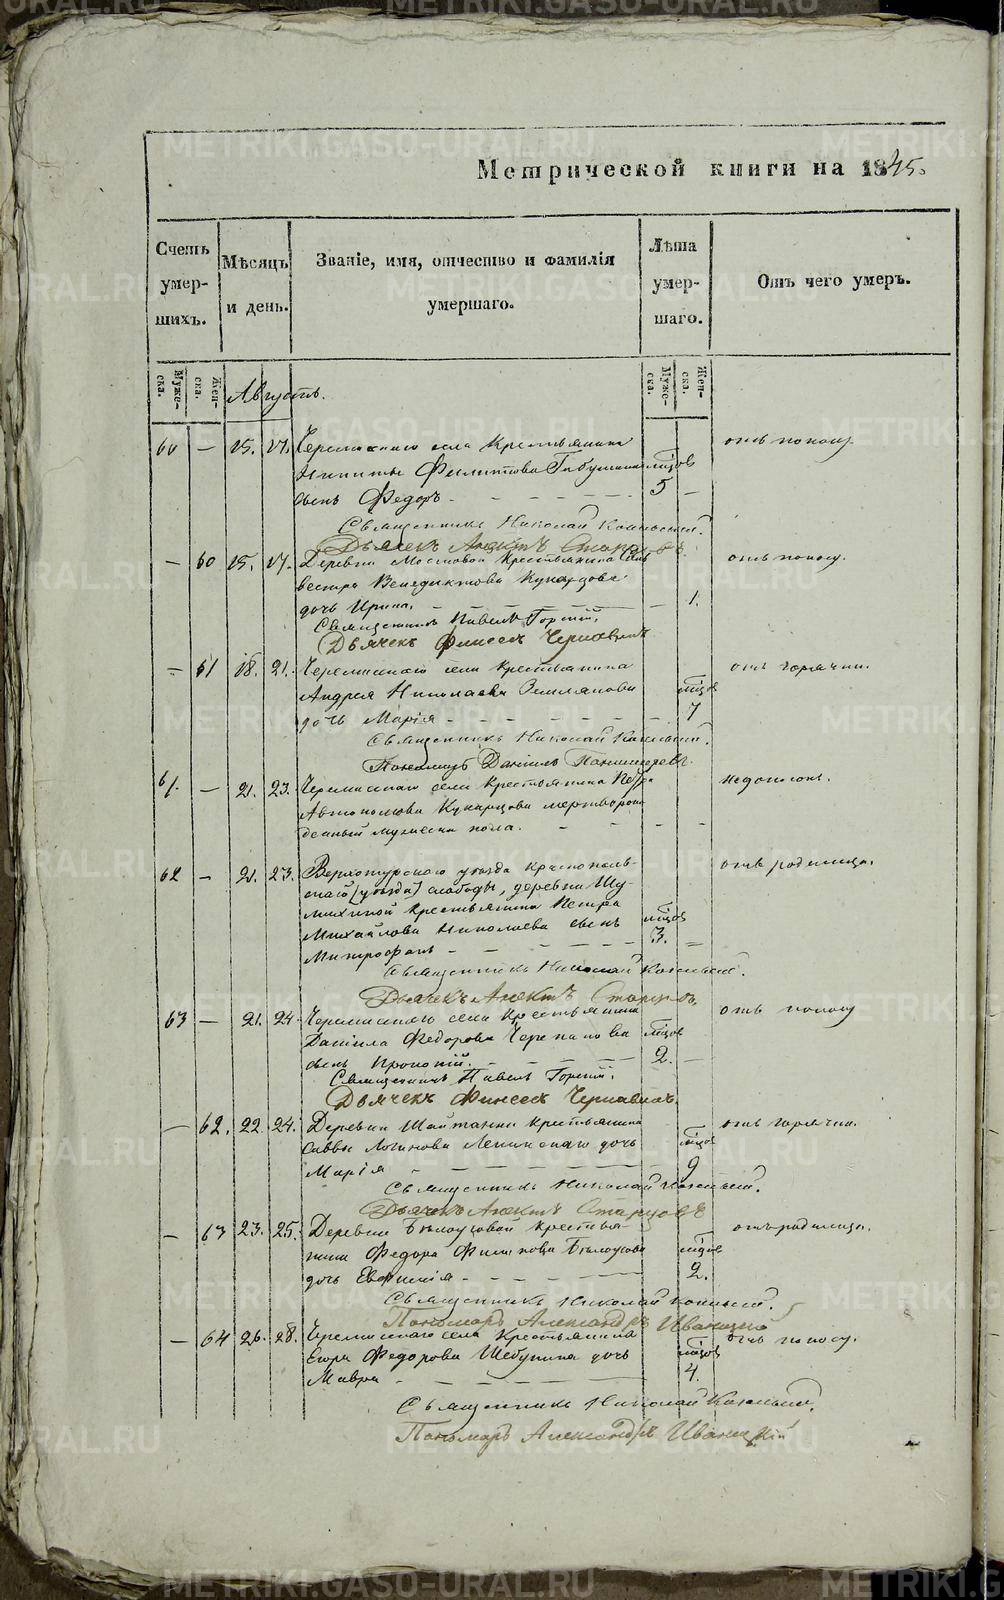 Метрической книги на 1845.
Счетъ умер- шихъ.
Мѣсяцъ и день.
Званіе, имя, отчество и фамилія умершаго.
Лѣта умер- шаго.
Отъ чего умеръ.
Муже- ска.
Жен- ска.
Муже- ска.
Жен- ска.
Августъ.
60 — 15. 17. села Крестьянина отъ поносу.
Никиты Филиппова мѣсяцов
сынъ Федоръ — 5 —
Священникъ Николай
Дьячекъ Старцовъ.
— 60 15. 17. Деревни Мостовой Крестьянина Силь- отъ поносу.
вестра Венедиктова Кукарцова
дочь Ирина. — 1.
Священникъ Павелъ Горный.
Дьячекъ Финеесъ Чернавинъ
— 61 18. 21. Черемисскаго села Крестьянина отъ горячки.
Андрея Николаева Землянова мѣсяцов
дочь Марія — 7
Священникъ Николай
Пономарь Даніилъ
61. — 21. 23. Черемисскаго села Крестьянина Петра недоносокъ.
Автономова Кукарцова мертворож-
денный мужеска пола. —
62 — 21. 23. Верхотурскаго уѣзда Краснополь- отъ родимца.
скаго (уѣзда) слободы, деревни Шу-
михиной Крестьянина Петра
Михайлова Николаева сынъ мѣсяцов
Митрофанъ — 3. —
Священникъ Николай
Дьячекъ Старцовъ.
63 — 21. 24. Черемисскаго села Крестьянина отъ поносу
Даніила Федорова Черепанова мѣсяцов
сынъ Прокопій. — 2. —
Священникъ Павелъ Горный.
Дьячекъ Финеесъ Чернавинъ.
— 62. 22. 24. Деревни Шайтанки Крестьянина отъ горячки.
Саввы Логинова дочь мѣсяцов
Марія — 9
Священникъ Николай
Дьячекъ Старцовъ
— 63 23. 25. Деревни Бѣлоусовой Крестья- отъ родимца.
нина Федора Филипова Бѣлоусова мѣсяцов
дочь Евфимія — 2.
Священникъ Николай
Пономарь Александръ Иваницкій
— 64 26. 28. Черемисскаго села Крестьянина отъ поносу.
Егора Федорова Шебунина дочь мѣсяцов
Мавра — 4.
Священникъ Николай
Пономарь Александръ Иваницкій
METRIKI.GASO-URAL.RU